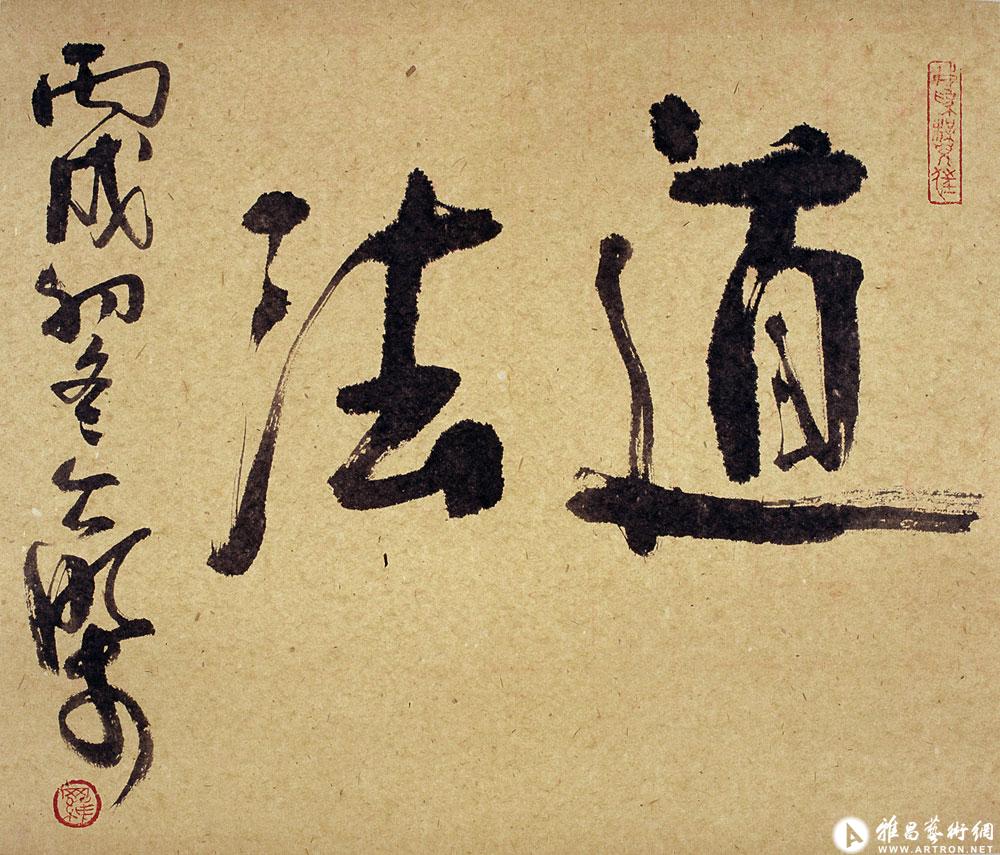 道法
丙戌初冬
雅昌藝術網
WWW.ARTRON.NET